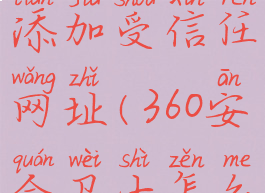 添加受信任
wǎng zhǐ ān
网址(360安
quán wèi shì zěn me
全卫士怎么